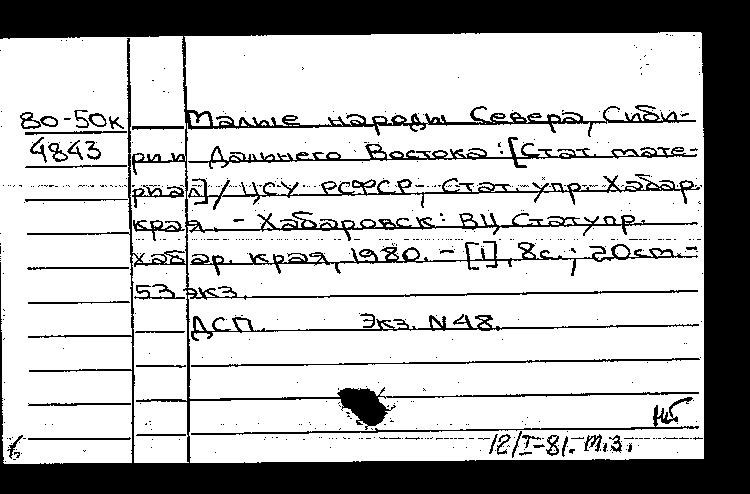 80-50к
4843
Малые народы Севера, Сиби-
ри и Дальнего Востока : [Стат. мате-
риал] / ЦСУ РСФСР, Стат. упр. Хабар.
края. - Хабаровск : ВЦ Стат упр.
Хабар. края, 1980. - [1], 8с.; 20см. -
53 экз.
ДСП. Экз. N48.
12/I-81. т.з.